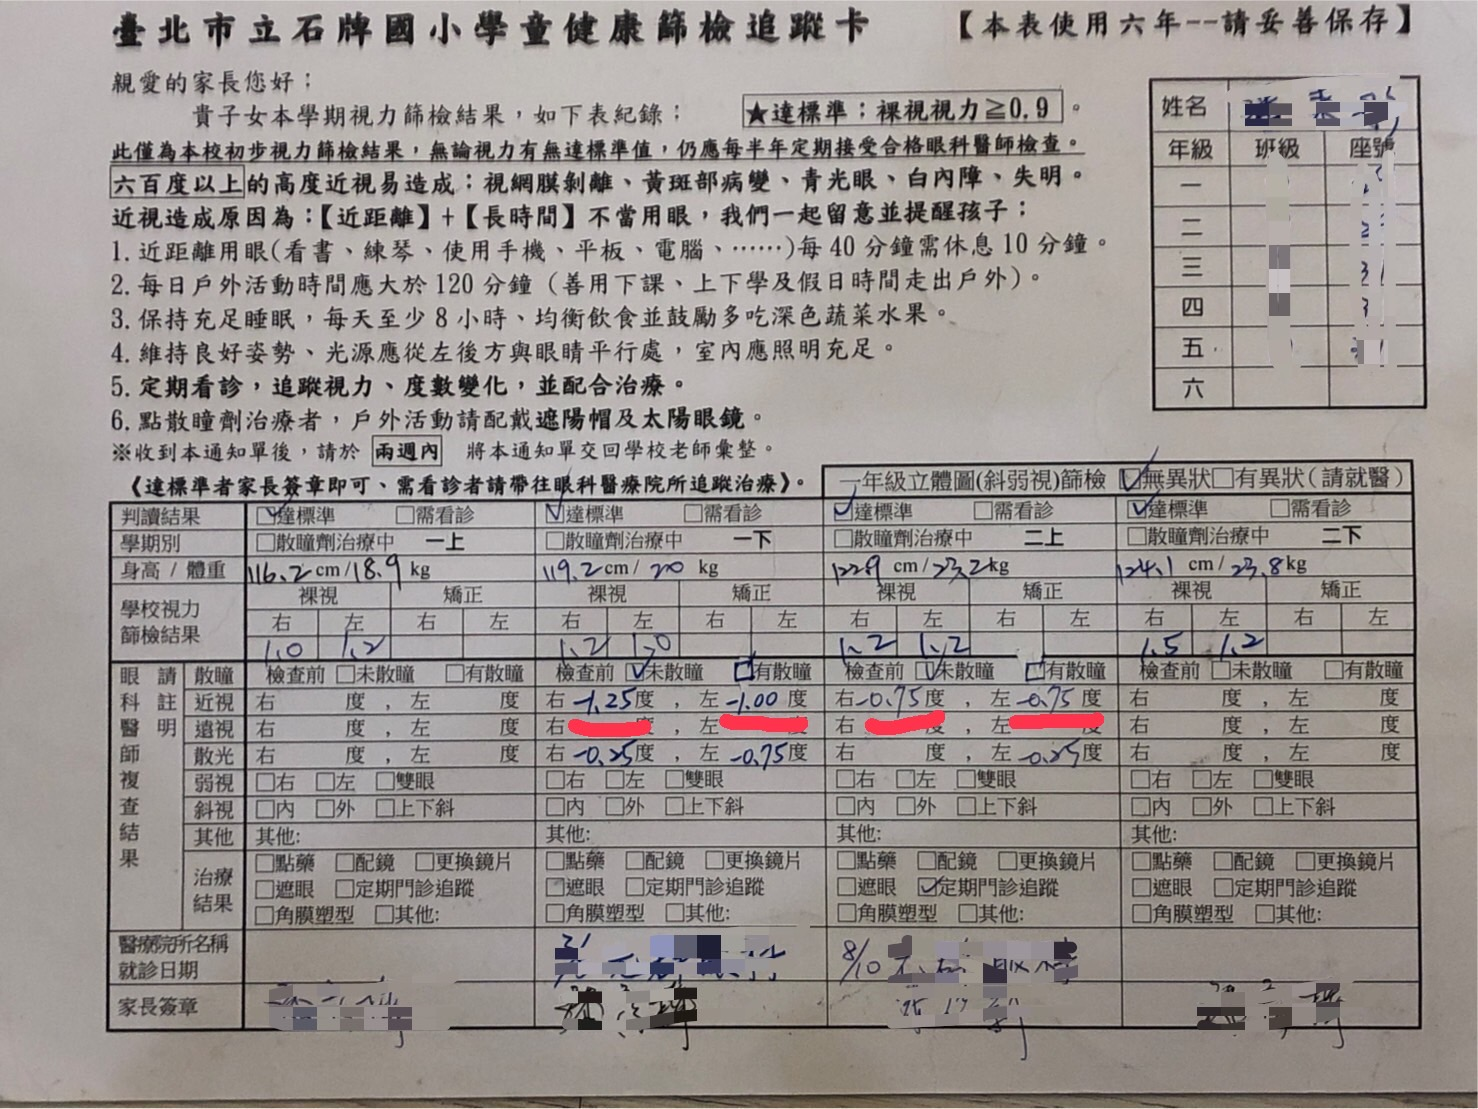 臺北市立石牌國小學童健康篩檢追蹤卡 【本表使用六年--請妥善保存】
親愛的家長您好：
貴子女本學期視力篩檢結果，如下表紀錄： ★達標準：裸視視力≧0.9 。
此僅為本校初步視力篩檢結果，無論視力有無達標準值，仍應每半年定期接受合格眼科醫師檢查。
六百度以上的高度近視易造成：視網膜剝離、黃斑部病變、青光眼、白內障、失明。
近視造成原因為：【近距離】+【長時間】不當用眼，我們一起留意並提醒孩子：
1. 近距離用眼(看書、練琴、使用手機、平板、電腦、……)每 40 分鐘需休息 10 分鐘。
2. 每日戶外活動時間應大於 120 分鐘（善用下課、上下學及假日時間走出戶外）。
3. 保持充足睡眠，每天至少 8 小時、均衡飲食並鼓勵多吃深色蔬菜水果。
4. 維持良好姿勢、光源應從左後方與眼睛平行處，室內應照明充足。
5. 定期看診，追蹤視力、度數變化，並配合治療。
6. 點散瞳劑治療者，戶外活動請配戴遮陽帽及太陽眼鏡。
※收到本通知單後，請於 兩週內 將本通知單交回學校老師彙整。
姓名
年級 班級 座號
一
二
三
四
五
六
《達標準者家長簽章即可、需看診者請帶往眼科醫療院所追蹤治療》。 一年級立體圖(斜弱視)篩檢 ☑無異狀□有異狀(請就醫)
判讀結果 ☑達標準 □需看診 ☑達標準 □需看診 ☑達標準 □需看診 ☑達標準 □需看診
學期別 □散瞳劑治療中 一上 □散瞳劑治療中 一下 □散瞳劑治療中 二上 □散瞳劑治療中 二下
身高 / 體重 116.2 cm/18.9 kg 119.2 cm/ 20 kg 122.9 cm / 23.2 kg 124.1 cm / 23.8 kg
學校視力 裸視 矯正 裸視 矯正 裸視 矯正 裸視 矯正
篩檢結果 右 左 右 左 右 左 右 左 右 左 右 左 右 左 右 左
1.0 1.2 1.2 1.0 1.2 1.2 1.5 1.2
眼科醫師複查結果 請註明 散瞳 檢查前 □未散瞳 □有散瞳 檢查前 ☑未散瞳 □有散瞳 檢查前 ☑未散瞳 □有散瞳 檢查前 □未散瞳 □有散瞳
近視 右 度，左 度 右 -1.25 度，左 -1.00 度 右 -0.75 度，左 -0.75 度 右 度，左 度
遠視 右 度，左 度 右 度，左 度 右 度，左 度 右 度，左 度
散光 右 度，左 度 右 -0.25 度，左 -0.75 度 右 度，左 -0.25 度 右 度，左 度
弱視 □右 □左 □雙眼 □右 □左 □雙眼 □右 □左 □雙眼 □右 □左 □雙眼
斜視 □內 □外 □上下斜 □內 □外 □上下斜 □內 □外 □上下斜 □內 □外 □上下斜
其他 其他: 其他: 其他: 其他:
治療結果 □點藥 □配鏡 □更換鏡片 □點藥 □配鏡 □更換鏡片 □點藥 □配鏡 □更換鏡片 □點藥 □配鏡 □更換鏡片
□遮眼 □定期門診追蹤 □遮眼 □定期門診追蹤 □遮眼 ☑定期門診追蹤 □遮眼 □定期門診追蹤
□角膜塑型 □其他: □角膜塑型 □其他: □角膜塑型 □其他: □角膜塑型 □其他:
醫療院所名稱
就診日期 8/10
家長簽章